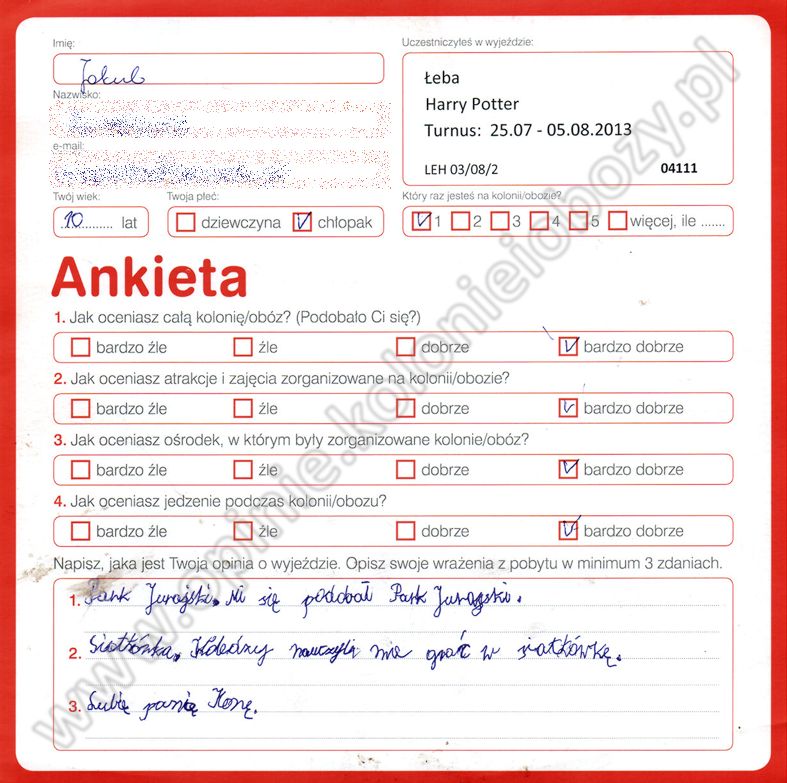 Imię:
Uczestniczyłeś w wyjeździe:
Jakub
Łeba
Nazwisko:
Harry Potter
Turnus: 25.07 - 05.08.2013
e-mail:
LEH 03/08/2 04111
Twój wiek: Twoja płeć: Który raz jesteś na kolonii/obozie?
10 lat dziewczyna chłopak 1 2 3 4 5 więcej, ile .......
Ankieta
1. Jak oceniasz całą kolonię/obóz? (Podobało Ci się?)
bardzo źle źle dobrze bardzo dobrze
2. Jak oceniasz atrakcje i zajęcia zorganizowane na kolonii/obozie?
bardzo źle źle dobrze bardzo dobrze
3. Jak oceniasz ośrodek, w którym były zorganizowane kolonie/obóz?
bardzo źle źle dobrze bardzo dobrze
4. Jak oceniasz jedzenie podczas kolonii/obozu?
bardzo źle źle dobrze bardzo dobrze
Napisz, jaka jest Twoja opinia o wyjeździe. Opisz swoje wrażenia z pobytu w minimum 3 zdaniach.
1. Park Jurajski. Mi się podobał Park Jurajski.
2. Siatkówka. Koledzy nauczyli mnie grać w siatkówkę.
3. Lubię panią
www.opinie.kolonieiobozy.pl